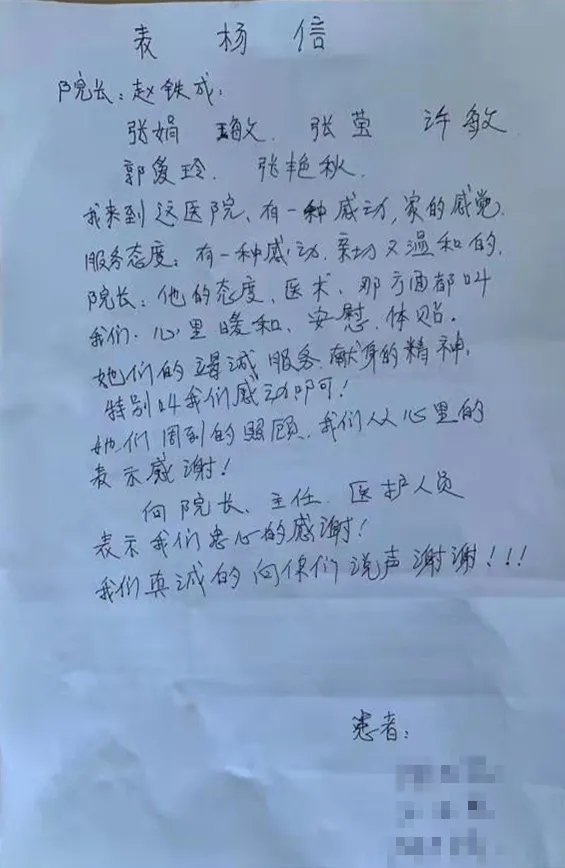 表杨信
院长：赵铁成：
张娟 敏 张莹 许敏
郭爱玲. 张艳秋.
我来到这医院、有一种感动,家的感觉.
服务态度：有一种感动.亲切又温和的.
院长：他的态度、医术、那方面都叫
我们.心里暖和、安慰.体贴.
她们的竭诚服务.献身的精神,
特别叫我们感动即可!
她们周到的照顾.我们从心里的
表示感谢!
向院长、主任.医护人员
表示我们忠心的感谢!
我们真诚的向你们说声谢谢!!!
患者：